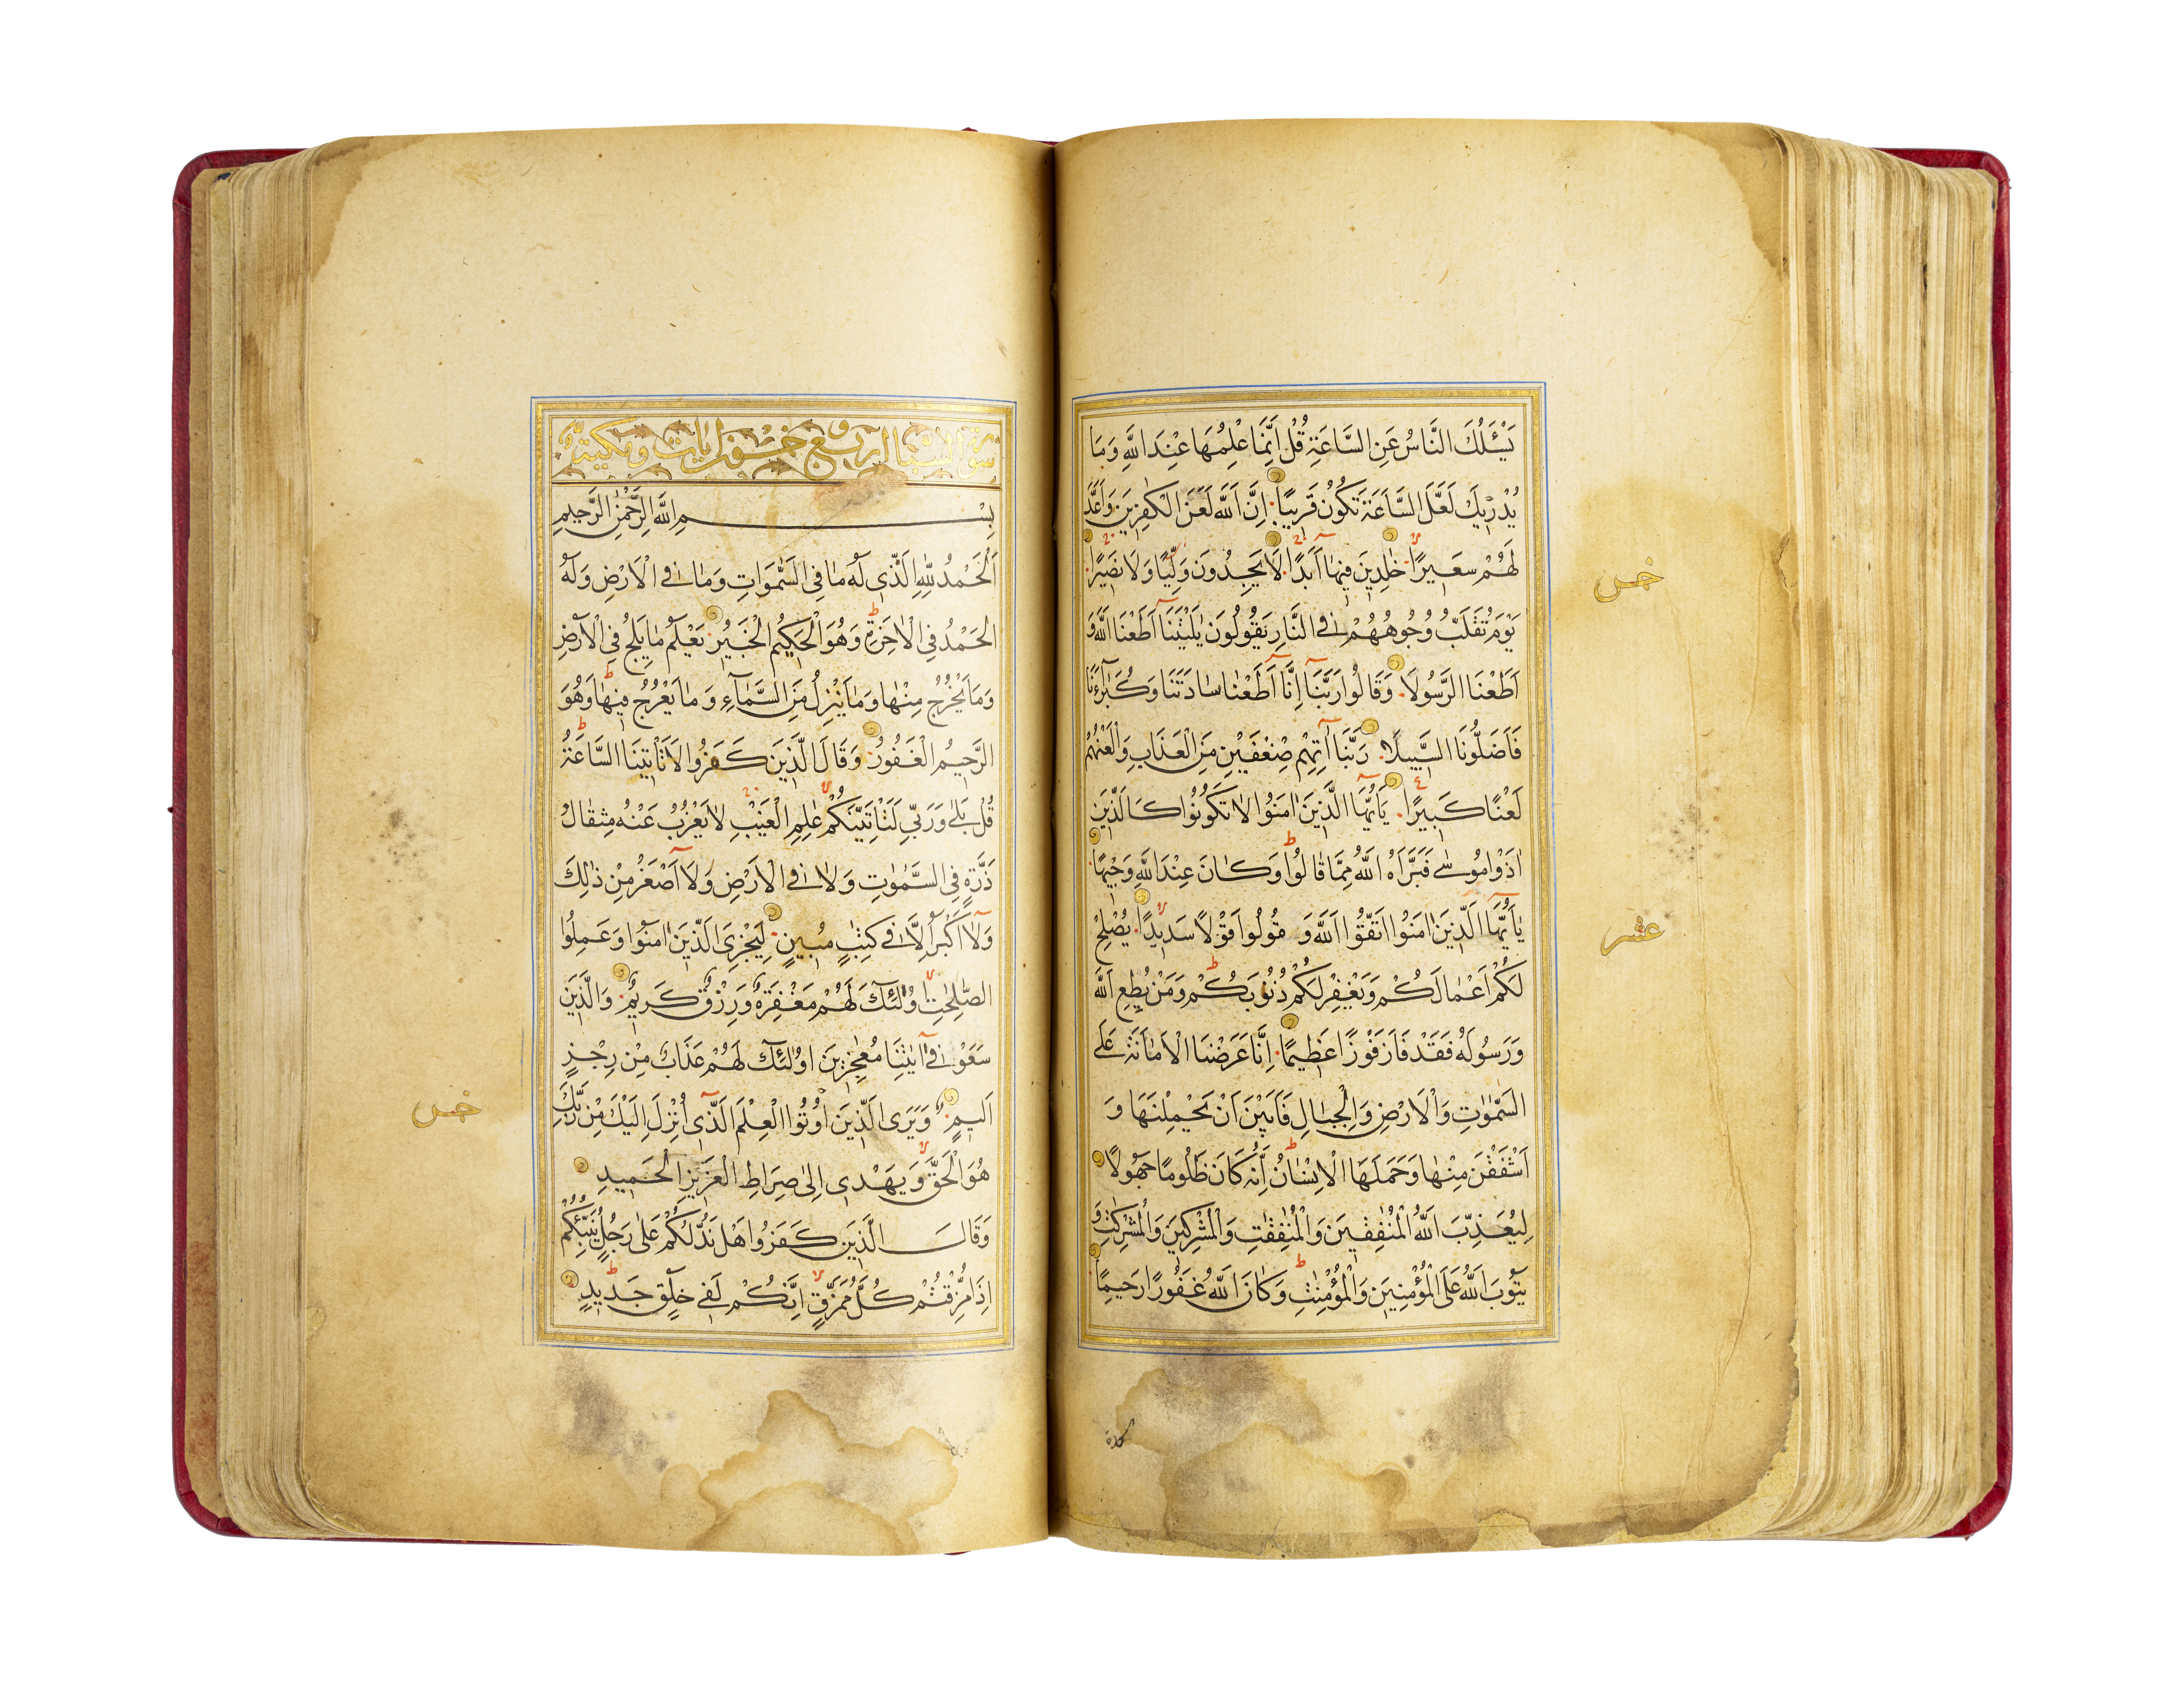 يَسْـَٔلُكَ النَّاسُ عَنِ السَّاعَةِ قُلْ اِنَّمَا عِلْمُهَا عِنْدَ اللّٰهِ وَمَا
يُدْرٖيكَ لَعَلَّ السَّاعَةَ تَكُونُ قَرٖيبًا اِنَّ اللّٰهَ لَعَنَ الْكٰفِرٖينَ وَاَعَدَّ
لَهُمْ سَعٖيرًا خٰلِدٖينَ فٖيهَا اَبَدًا لَا يَجِدُونَ وَلِيًّا وَلَا نَصٖيرًا
يَوْمَ تُقَلَّبُ وُجُوهُهُمْ فِى النَّارِ يَقُولُونَ يٰلَيْتَنَا اَطَعْنَا اللّٰهَ وَ
اَطَعْنَا الرَّسُولَا وَقَالُوا رَبَّنَا اِنَّا اَطَعْنَا سَادَتَنَا وَكُبَرَاءَنَا
فَاَضَلُّونَا السَّبٖيلَا رَبَّنَا اٰتِهِمْ ضِعْفَيْنِ مِنَ الْعَذَابِ وَالْعَنْهُمْ
لَعْنًا كَبٖيرًا يَا اَيُّهَا الَّذٖينَ اٰمَنُوا لَا تَكُونُوا كَالَّذٖينَ
اٰذَوْا مُوسٰى فَبَرَّاَهُ اللّٰهُ مِمَّا قَالُوا وَكَانَ عِنْدَ اللّٰهِ وَجٖيهًا
يٰاَيُّهَا الَّذٖينَ اٰمَنُوا اتَّقُوا اللّٰهَ وَ قُولُوا قَوْلًا سَدٖيدًا يُصْلِحْ
لَكُمْ اَعْمَالَكُمْ وَيَغْفِرْ لَكُمْ ذُنُوبَكُمْ وَمَنْ يُطِعِ اللّٰهَ
وَرَسُولَهُ فَقَدْ فَازَ فَوْزًا عَظٖيمًا اِنَّا عَرَضْنَا الْاَمَانَةَ عَلَى
السَّمٰوٰتِ وَالْاَرْضِ وَالْجِبَالِ فَاَبَيْنَ اَنْ يَحْمِلْنَهَا وَ
اَشْفَقْنَ مِنْهَا وَحَمَلَهَا الْاِنْسَانُ اِنَّهُ كَانَ ظَلُومًا جَهُولًا
لِيُعَذِّبَ اللّٰهُ الْمُنٰفِقٖينَ وَالْمُنٰفِقٰتِ وَالْمُشْرِكٖينَ وَالْمُشْرِكٰتِ وَ
يَتُوبَ اللّٰهُ عَلَى الْمُؤْمِنٖينَ وَالْمُؤْمِنٰتِ وَكَانَ اللّٰهُ غَفُورًا رَحٖيمًا
خمس
عشر
سورة السبا اربع وخمسون ايات ومكية
بِسْمِ اللّٰهِ الرَّحْمٰنِ الرَّحٖيمِ
اَلْحَمْدُ لِلّٰهِ الَّذٖى لَهُ مَا فِى السَّمٰوَاتِ وَمَا فِى الْاَرْضِ وَلَهُ
الْحَمْدُ فِى الْاٰخِرَةِ وَهُوَ الْحَكٖيمُ الْخَبٖيرُ يَعْلَمُ مَا يَلِجُ فِى الْاَرْضِ
وَمَا يَخْرُجُ مِنْهَا وَمَا يَنْزِلُ مِنَ السَّمَاءِ وَمَا يَعْرُجُ فٖيهَا وَهُوَ
الرَّحٖيمُ الْغَفُورُ وَقَالَ الَّذٖينَ كَفَرُوا لَا تَاْتٖينَا السَّاعَةُ
قُلْ بَلٰى وَرَبّٖى لَتَاْتِيَنَّكُمْ عَالِمِ الْغَيْبِ لَا يَعْزُبُ عَنْهُ مِثْقَالُ
ذَرَّةٍ فِى السَّمٰوٰتِ وَلَا فِى الْاَرْضِ وَلَا اَصْغَرُ مِنْ ذٰلِكَ
وَلَا اَكْبَرُ اِلَّا فٖى كِتٰبٍ مُبٖينٍ لِيَجْزِىَ الَّذٖينَ اٰمَنُوا وَعَمِلُوا
الصّٰلِحٰتِ اُولٰئِكَ لَهُمْ مَغْفِرَةٌ وَرِزْقٌ كَرٖيمٌ وَالَّذٖينَ
سَعَوْ فٖى اٰيٰتِنَا مُعٰجِزٖينَ اُولٰئِكَ لَهُمْ عَذَابٌ مِنْ رِجْزٍ
اَلٖيمٍ وَيَرَى الَّذٖينَ اُوتُوا الْعِلْمَ الَّذٖى اُنْزِلَ اِلَيْكَ مِنْ رَبِّكَ
هُوَ الْحَقَّ وَيَهْدٖى اِلٰى صِرَاطِ الْعَزٖيزِ الْحَمٖيدِ
وَقَالَ الَّذٖينَ كَفَرُوا هَلْ نَدُلُّكُمْ عَلٰى رَجُلٍ يُنَبِّئُكُمْ
اِذَا مُزِّقْتُمْ كُلَّ مُمَزَّقٍ اِنَّكُمْ لَفٖى خَلْقٍ جَدٖيدٍ
خمس